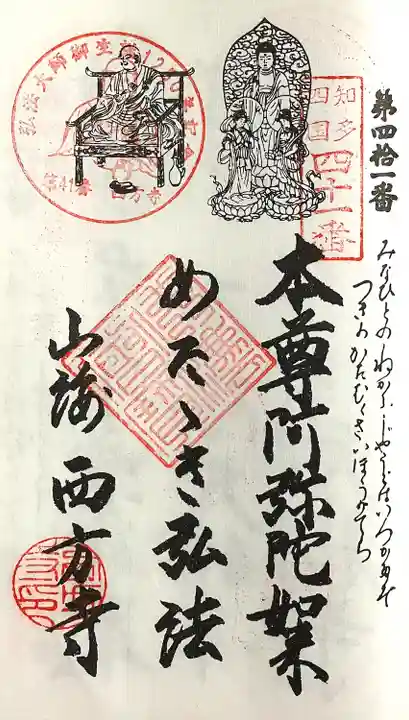 第四拾一番
みなひとの
つき かたむくさいほう てら
知多
四国
四十一番
弘法大師御生誕1250年記念
第41番 西方寺
本尊阿弥陀如来
めたゝき弘法
山海 西方寺